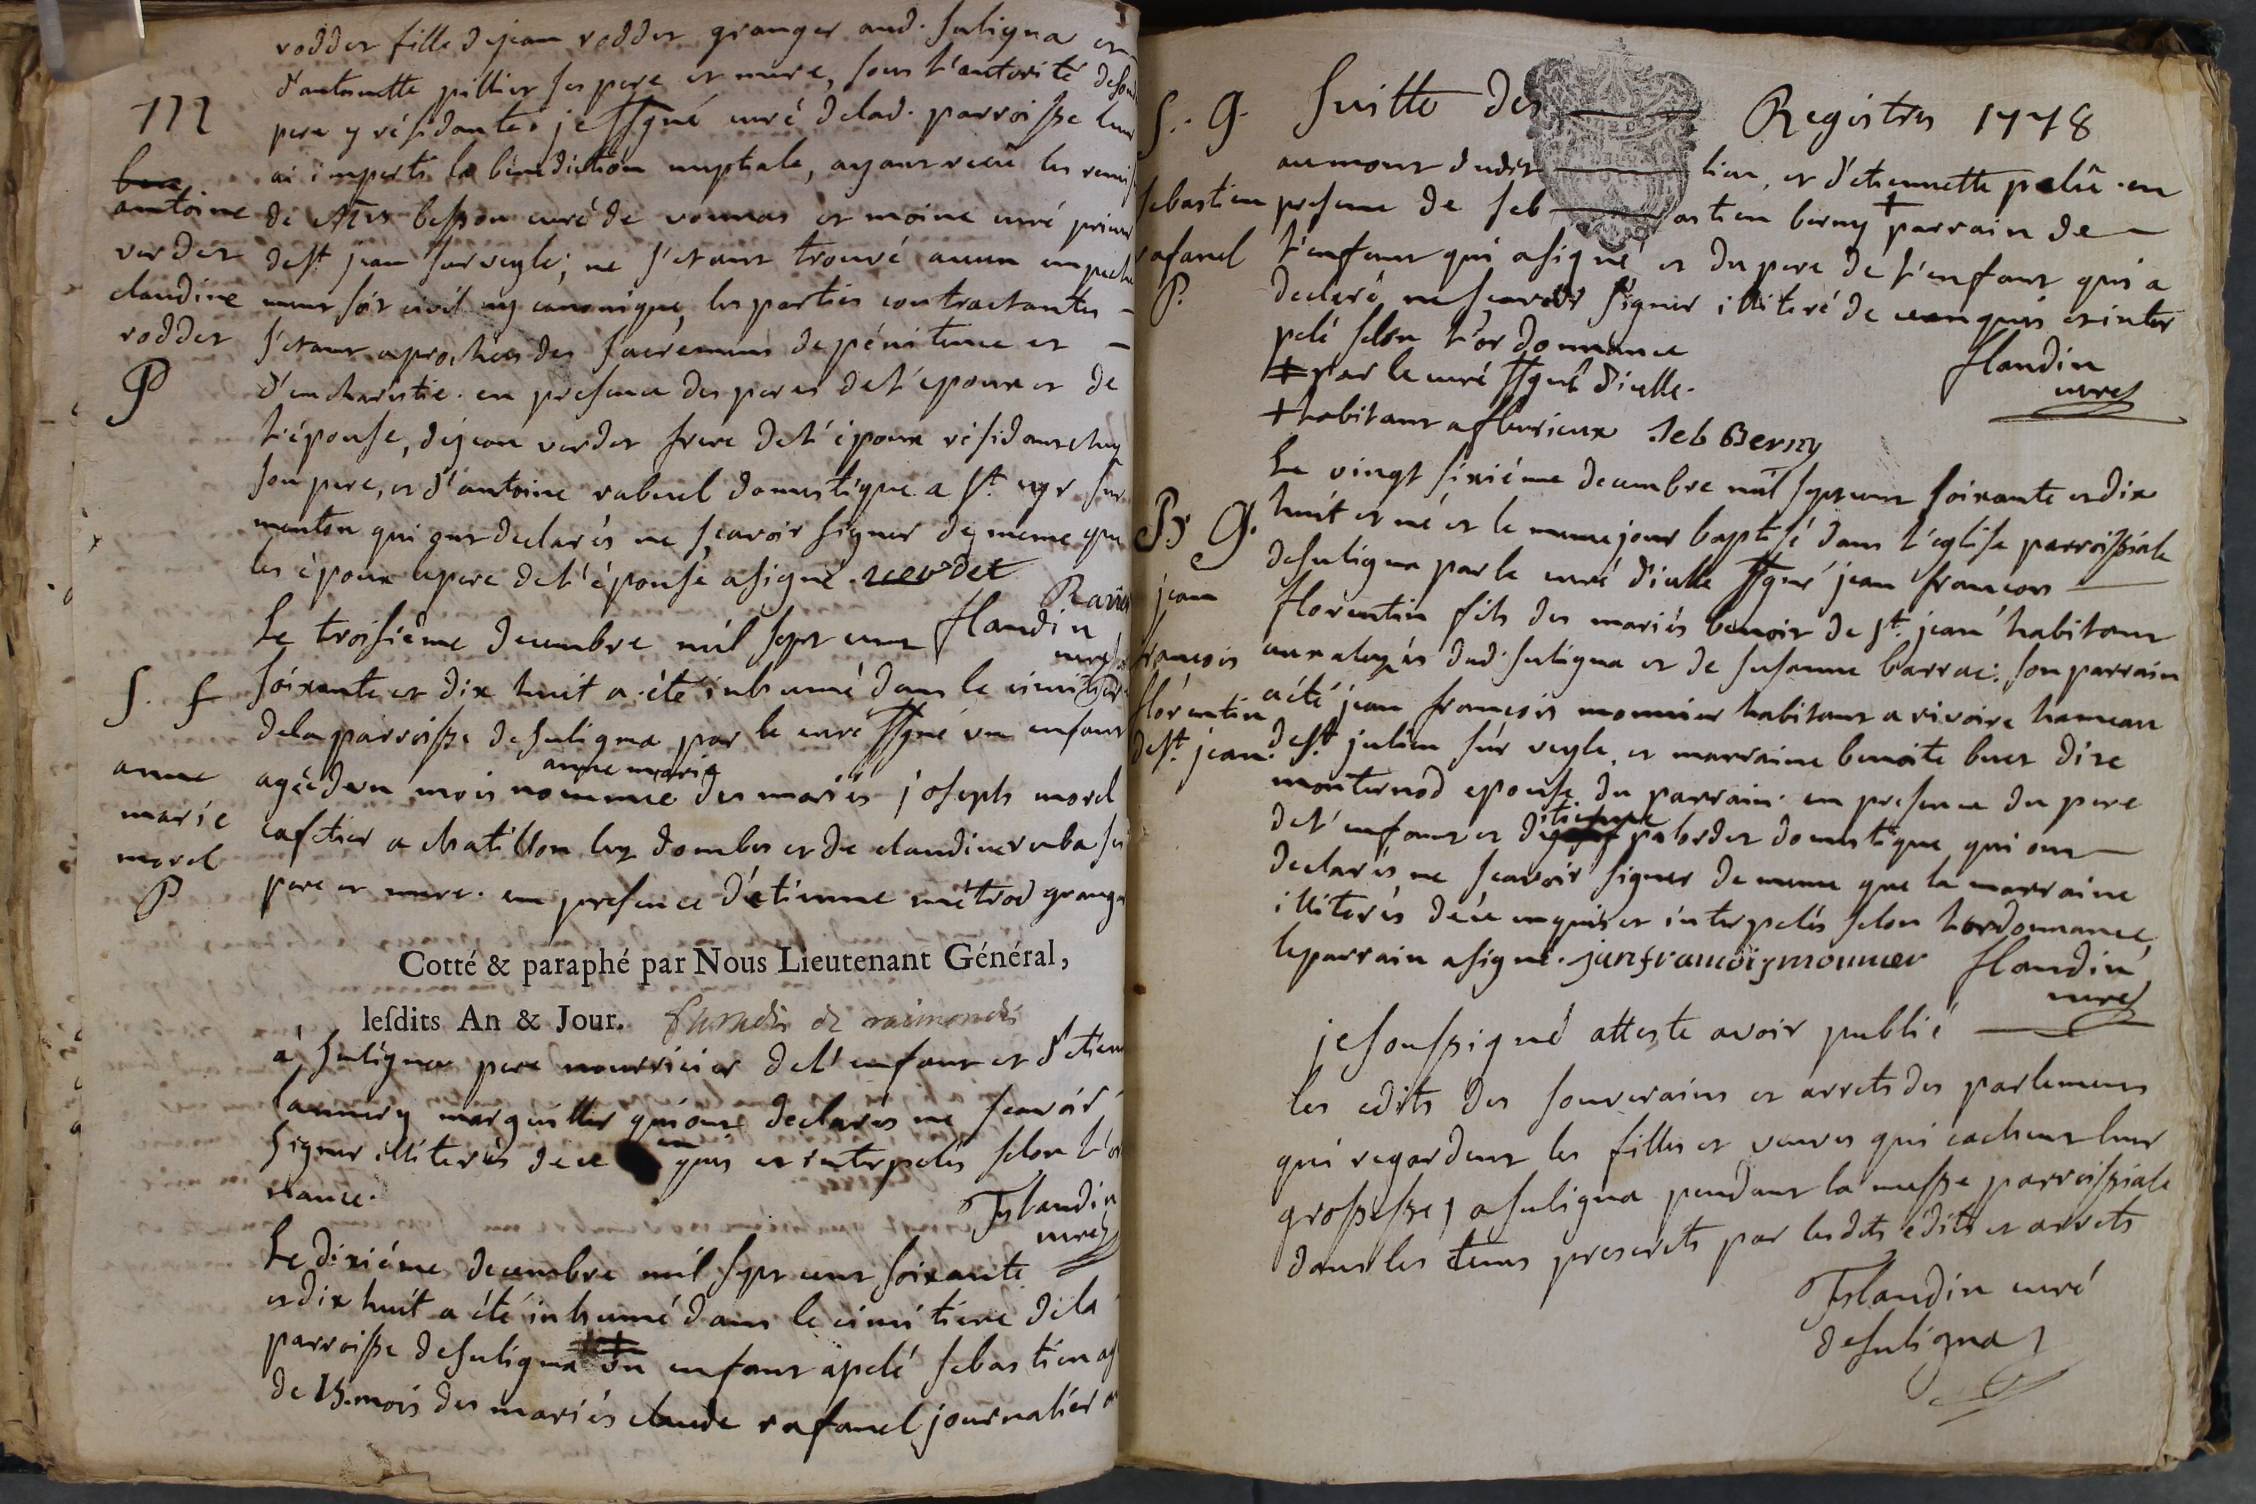 rodder fille dejean rodder granger aud. Suligna et
d'antoinette pillier ses pere et mere, sous l'autorité de son
pere y résidante. je ssgné curé delad. parroisse leur
ai imparti la bénédiction nuptiale, ayant recû les remis
de Mrs besson curé de vonnas et moine curé prieur
de st jean sur veyle; ne s'etant trouvé aucun empeche
ment soit civil ny canonique, les parties contractantes
s'etant aprochées des sacremens de pénitence et
d'eucharistie. en presence des peres de l'epoux et de
l'épouse, dejean verder frere de l'époux résidant chez
son pere, et d'antoine rabuel domestique a st. cyr sur
menton qui ont declarés ne scavoir signer de meme que
les époux le pere de l'épouse a signé.
111
antoine
verder
claudine
rodder
P
Le troisiéme decembre mil sept cent
flandin
curé
soixante et dix huit a été inhumé dans le cimitiere
dela parroisse de Suligna par le curé ssgné un enfant
anne marie
agée d'un mois nommée des mariés joseph morel
cafetier a chatillon les dombes et de claudine ruba ses
pere et mere. en presence d'etienne métrod granger
S. f
anne
marie
morel
P
Cotté & paraphé par Nous Lieutenant Général,
lesdits An & Jour.
á Suligna pere nourricier de l'enfant et d'etienne
lammery marguiller qui ont declarés ne scavoir
signer illiterés de ce enquis et interpelés selon l'or
nance.
flandin
curé
Le dixiéme decembre mil sept cent soixante
et dix huit a été inhumé dans le cimitiere de la
parroisse de Suligna un enfant apelé sebastien agé
de 15. mois des mariés claude rafanel journalier
S. G.
Suitte des Registres 1778
au mont dudit lieu, et d'etiennette pelû. en
presence de seb astien berny + parrain de
l'enfant qui a signé et du pere de l'enfant qui a
declaré ne scavoir signer illiteré de ce enquis et inter
pelé selon l'ordonnance
par le curé ssgné d'icelle.
+ habitant a fleurieux Seb Berny
flandin
curé
sebastien
rafanel
P.
Le vingt sixiéme decembre mil sept cent soixante et dix
huit et né et le meme jour baptisé dans l'eglise parroissiale
de Suligna par le curé d'icelle ssgné jean francois
florentin fils des mariés benoit de st. jean habitant
aux alogés dud. Suligna et de susanne barrac: son parrain
a été jean francois monnier habitant a rivoire hameau
de st. julien sur veyle, et marraine benoite buer dite
monternod epouse du parrain. en presence du pere
de l'enfant et d'etienne palordet domestique qui ont
declarés ne scavoir signer de meme que la marraine
illiterés de ce enquis et interpelés selon l'ordonnance,
le parrain a signé. jan francois monnier
flandin
curé
B G.
jean
francois
florentin
de st. jean
je soussigné atteste avoir publié
les edits des souverains et arrets des parlemens
qui regardent les filles et veuves qui cachent leur
grossesse, a Suligna pendant la messe parroissiale
dans les tems prescrits par lesdits édits et arrets
flandin curé
de Suligna